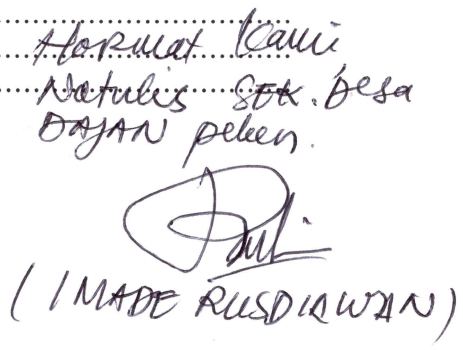 Hormat Kami,
Notulis SEK. Desa
DAJAN peken.
(I MADE RUSDIAWAN)